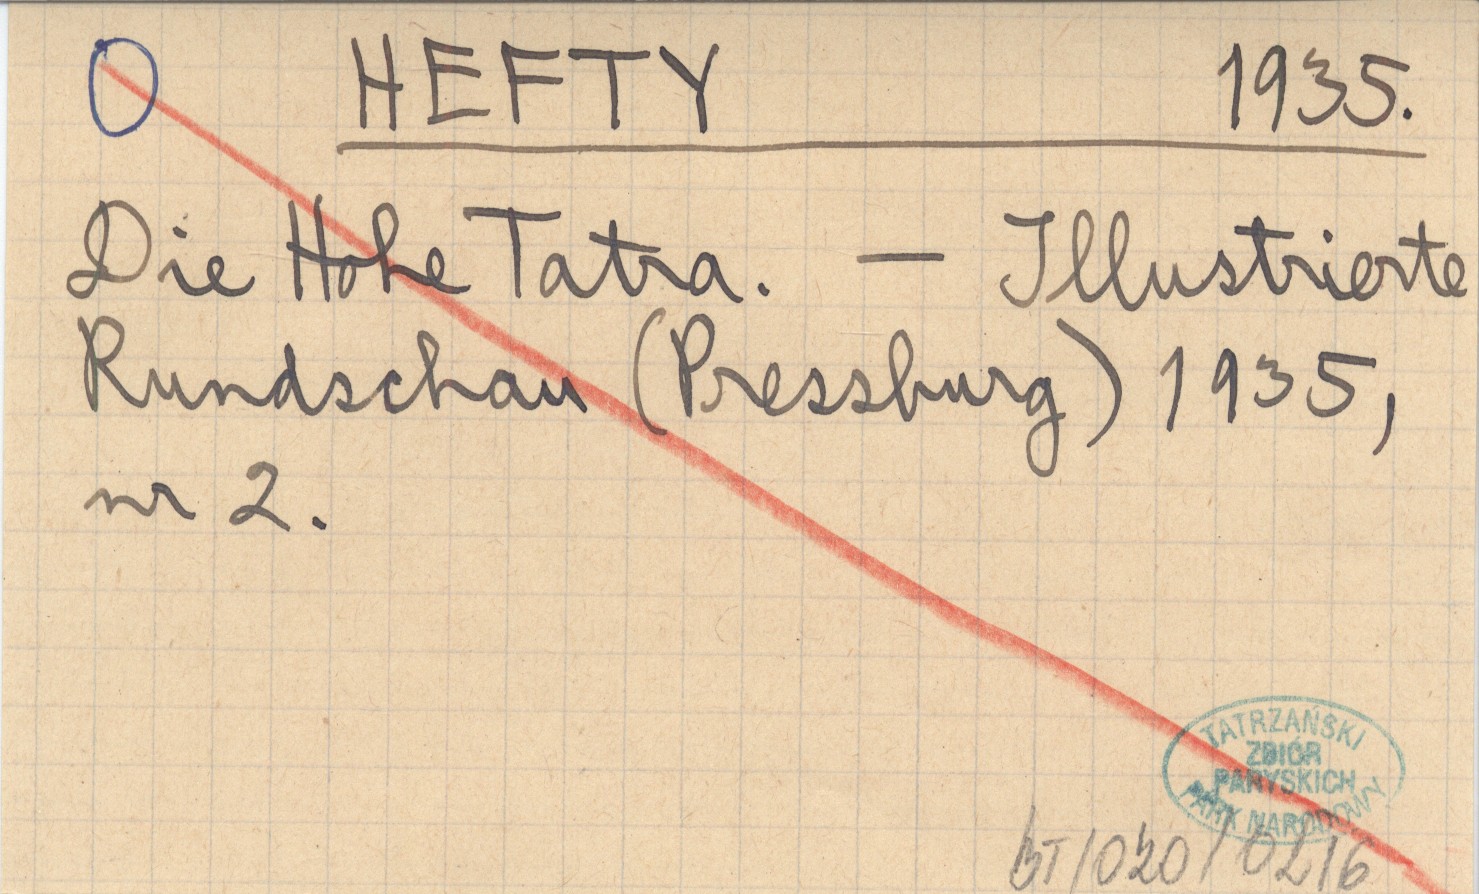 HEFTY 1935.
Die Hohe Tatra. — Illustrierte
Rundschau (Pressburg) 1935,
nr 2.
TATRZAŃSKI
ZBIÓR
PARYSKICH
PARK NARODOWY
BT/020/0216